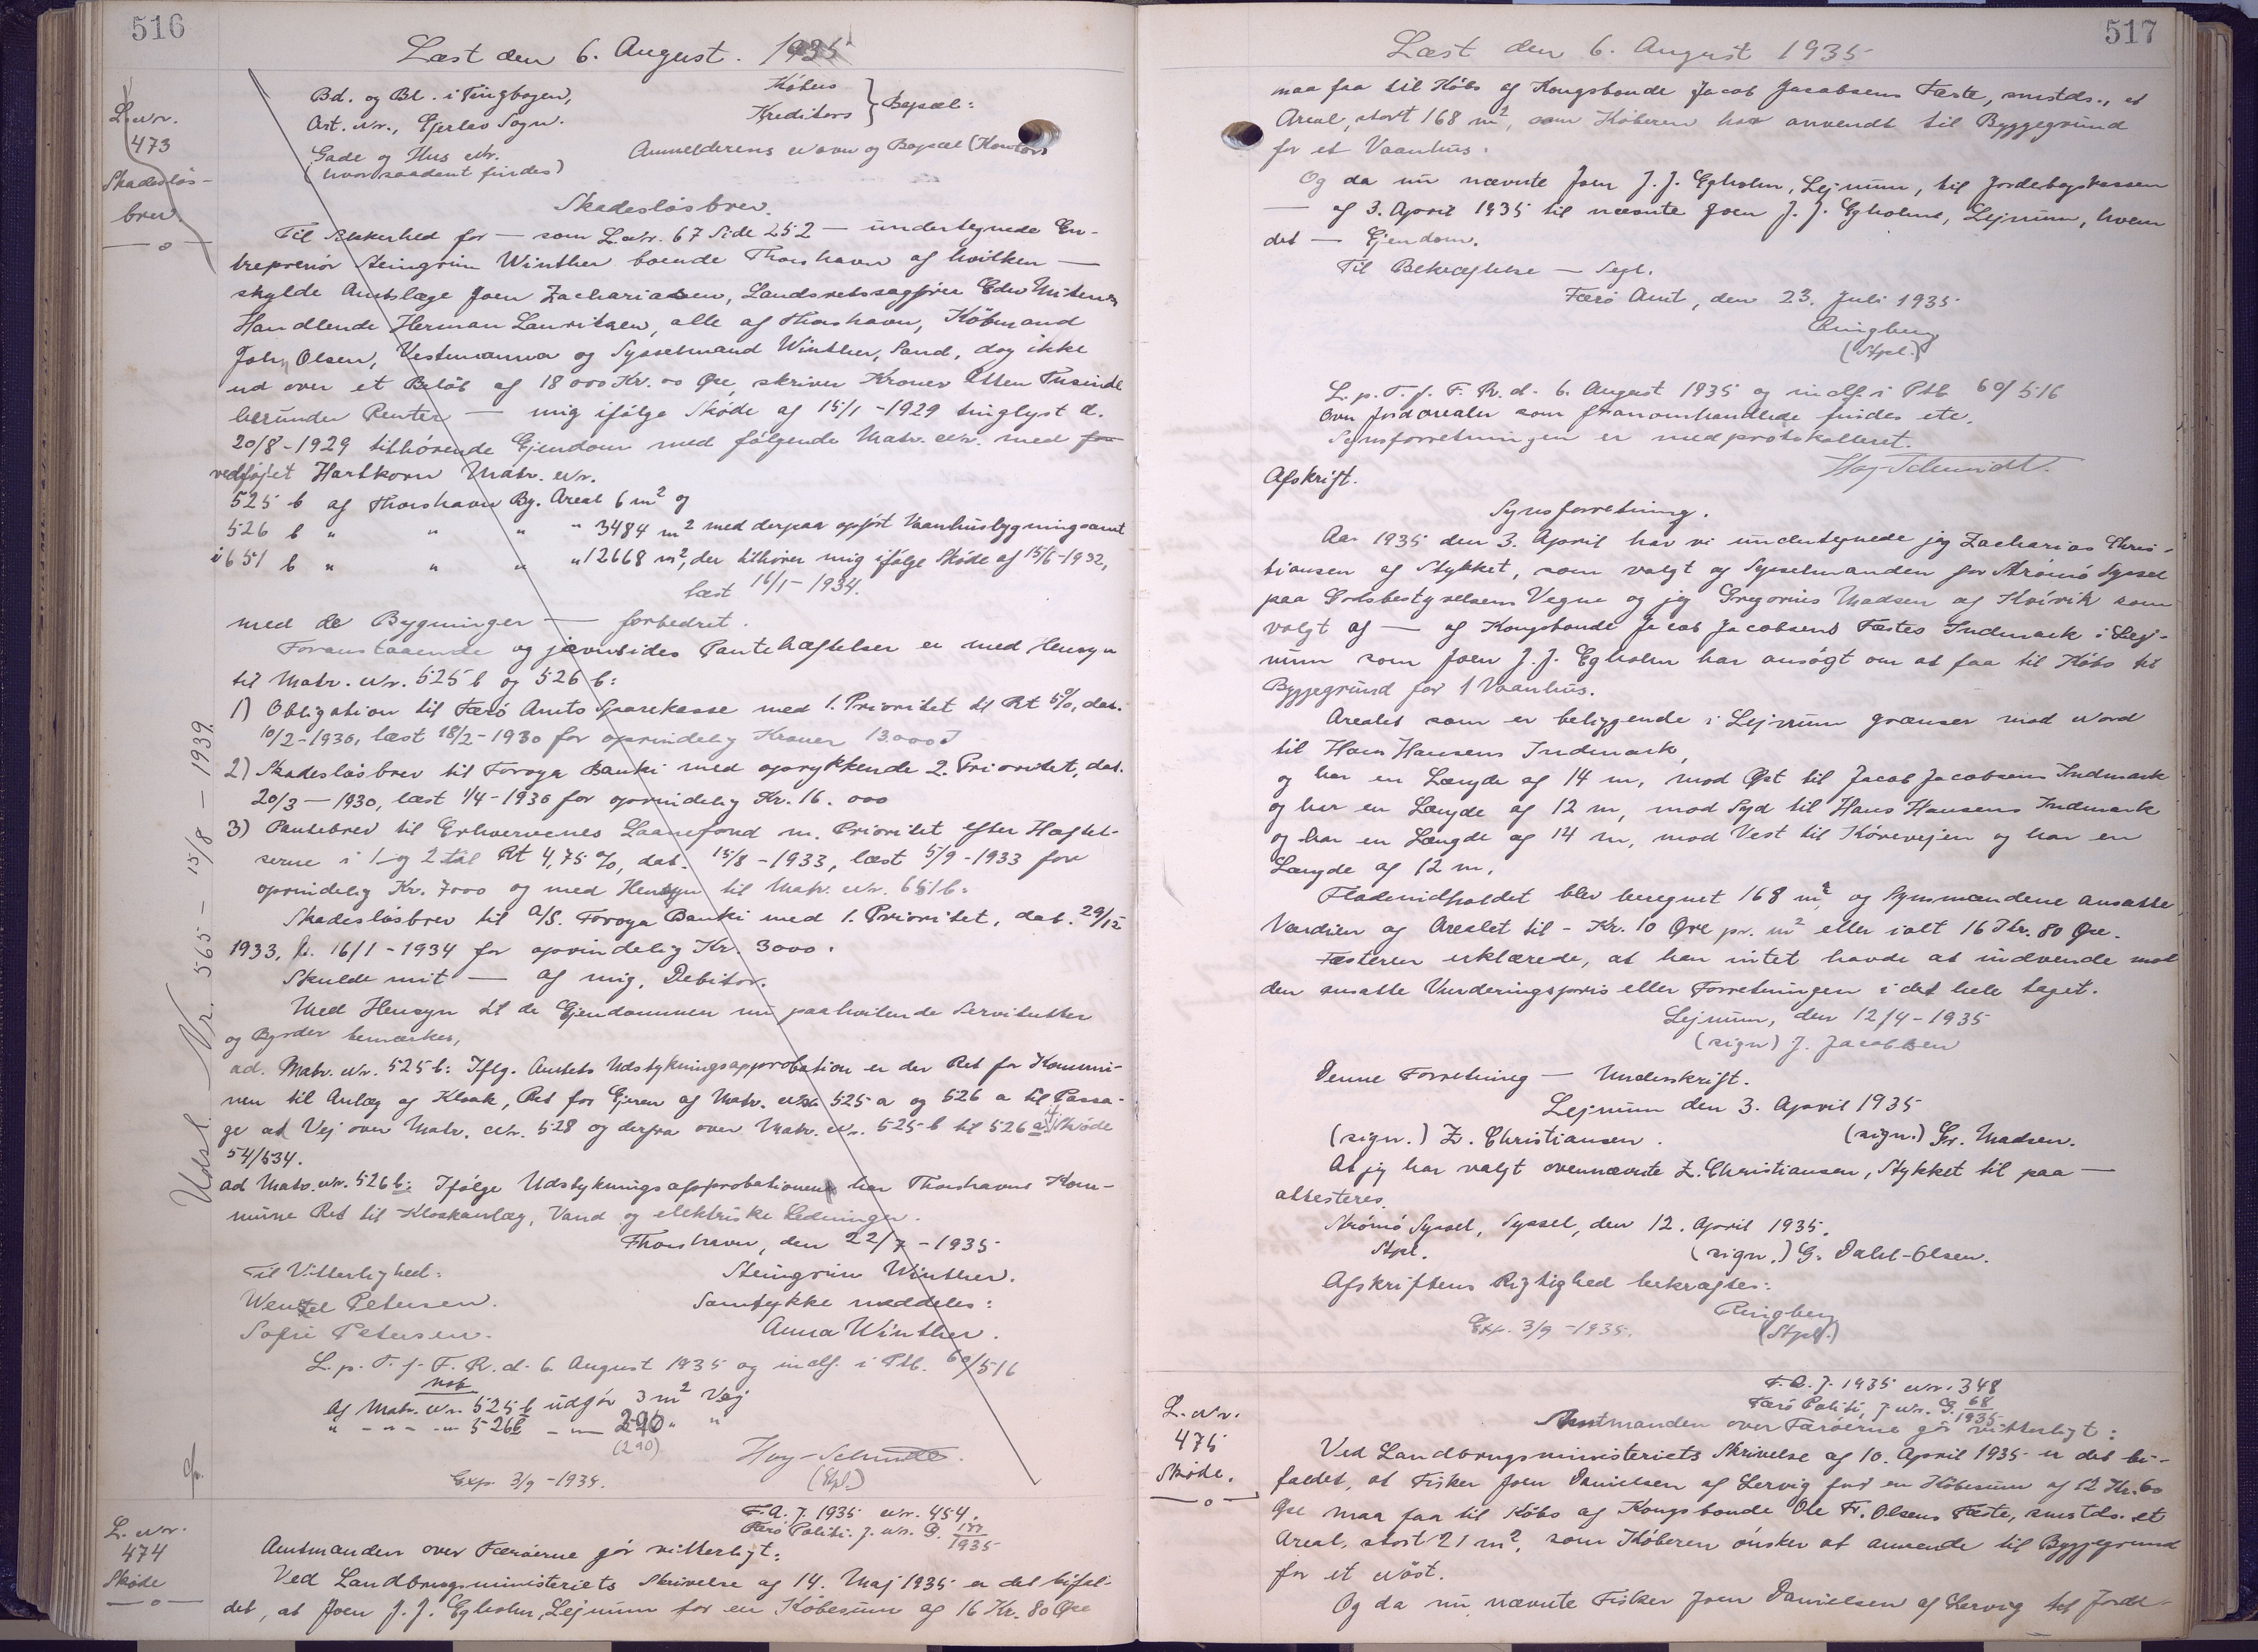 516
Læst den 6. August. 1935
L. Nr.
473
Skadesløs-
brev
Bd. og Bl. i Tingbogen,
Art. Nr., Ejerlav Sogn.
Gade og Hus Nr.
(hvor saadant findes)
Købers
Kreditors } Bopæl:
Anmelderens Navn og Bopæl (Kontor)
Skadesløsbrev.
Til Sikkerhed for — som L. Nr. 67 Side 252 — undertegnede En-
treprenør Steingrim Winther boende Thorshavn af hvilken —
skylde Amtslæge Joen Zachariasen, Landsretssagfører Edw Mitens
Handlende Herman Lauritzen, alle af Thorshavn, Købmand
John Olsen, Vestmanna og Sysselmand Winther, Sand, dog ikke
ud over et Beløb af 18000 Kr. 00 Øre, skriver Kroner Atten Tusinde
herunder Renter — mig ifølge Skøde af 15/1 - 1929 tinglyst d.
20/8 - 1929 tilhørende Ejendom med følgende Matr. Nr. med for
vedføjet Hartkorn Matr. Nr.
525 b af Thorshavn By. Areal 6 m² og
526 b " " " " 3484 m² med derpaa opført Vaanhusbygning samt
i 651 b " " " " 12668 m², der tilhører mig ifølge Skøde af 15/6 - 1932,
læst 16/1 - 1934.
med de Bygninger — forbedret.
Foranstaaende og jævnsides Pantehæftelser er med Hensyn
til Matr. Nr. 525 b og 526 b:
1) Obligation til Færø Amts Sparekasse med 1. Prioritet til Rt 5%, dat.
10/2 - 1930, læst 18/2 - 1930 for oprindelig Kroner 13.000
2) Skadesløsbrev til Føroya Banki med oprykkende 2. Prioritet, dat.
20/3 — 1930, læst 1/4 - 1930 for oprindelig Kr. 16.000
3) Pantebrev til Erhvervenes Laanefond m. Prioritet efter Hæftel-
serne i 1 og 2 til Rt 4,75 %, dat. 15/8 - 1933, læst 5/9 - 1933 for
oprindelig Kr. 7000 og med Hensyn til Matr. Nr. 651 b:
Skadesløsbrev til A/S. Føroya Banki med 1. Prioritet, dat. 29/12
1933, l. 16/1 - 1934 for oprindelig Kr. 3000.
Skulde mit — af mig, Debitor.
Med Hensyn til de Ejendommen nu paahvilende Servitutter
og Byrder bemærkes,
ad. Matr. Nr. 525 b: Iflg. Amtets Udstykningsapprobation er der Ret for Kommu-
nen til Anlæg af Kloak, Ret for Ejeren af Matr. Nr. 525 a og 526 a til Passa-
ge ad Vej over Matr. Nr. 528 og derfra over Matr. Nr. 525 b til 526 a, Skøde
54/534.
ad Matr. Nr. 526 b: Ifølge Udstykningsapprobationen har Thorshavns Kom-
mune Ret til Kloakanlæg, Vand og elektriske Ledninger.
Thorshavn, den 22/7 - 1935
Til Vitterlighed:
Steingrim Winther.
Wenzel Petersen.
Samtykke meddeles:
Sofie Petersen.
Anna Winther.
L. p. T. f. F. R. d. 6. August 1935 og indf. i Ptb. 60/516
Af Matr. Nr. 525 b udgør 3 m² Vej
" - " - - " 526 b - — 290 " "
(290)
Hoy-Schmidt.
(Stpl.)
Exp. 3/9 - 1935.
Udsl. Nr. 565 — 15/8 — 1939.
L. Nr.
474
Skøde
F. A. J. 1935 Nr. 454.
Færø Politi. J. Nr. G. 177/1935
Amtmanden over Færøerne gør vitterligt:
Ved Landbrugsministeriets Skrivelse af 14. Maj 1935 er det bifal-
det, at Joen J. J. Egholm, Lejnum for en Købesum af 16 Kr. 80 Øre
517
Læst den 6. August 1935
maa faa til Købs af Kongsbonde Jacob Jacobsens Fæste, smstds., et
Areal, stort 168 m², som Køberen har anvendt til Byggegrund
for et Vaanhus.
Og da nu nævnte Joen J. J. Egholm, Lejnum, til Jordebogskassen
— af 3. April 1935 til nævnte Joen J. J. Egholm, Lejnum, hvem
det — Ejendom.
Til Bekræftelse — Segl.
Færø Amt, den 23. Juli 1935
Ringberg
(Stpl.)
L. p. T. f. F. R. d. 6. August 1935 og indf. i Ptb 60/516
Over Jordarealer som foranomhandlede findes etc.
Synsforretningen er medprotokolleret.
Hoy-Schmidt.
Afskrift.
Synsforretning.
Aar 1935 den 3. April har vi undertegnede jeg Zacharias Chris-
tiansen af Stykket, som valgt af Sysselmanden for Strømø Syssel
paa Godsbestyrelsens Vegne og jeg Gregorius Madsen af Kvivik som
valgt af — af Kongsbonde Jacob Jacobsens Fæstes Indmark i Lej-
num som Joen J. J. Egholm har ansøgt om at faa til Købs til
Byggegrund for 1 Vaanhus.
Arealet som er beliggende i Lejnum grænser mod Nord
til Hans Hansens Indmark,
og har en Længde af 14 m, mod Øst til Jacob Jacobsens Indmark
og har en Længde af 12 m, mod Syd til Hans Hansens Indmark
og har en Længde af 14 m, mod Vest til Kørevejen og har en
Længde af 12 m.
Fladeindholdet blev beregnet 168 m², og Synsmændene ansatte
Værdien af Arealet til - Kr. 10 Øre pr. m² eller ialt 16 Kr. 80 Øre.
Fæsteren erklærede, at han intet havde at indvende mod
den ansatte Vurderingspris eller Forretningen i det hele taget.
Lejnum, den 12/4 - 1935
(sign) J. Jacobsen
Denne Forretning — Underskrift.
Lejnum den 3. April 1935
(sign.) Z. Christiansen.
(sign.) Gr. Madsen.
At jeg har valgt ovennævnte Z. Christiansen, Stykket til paa —
attesteres.
Strømø Syssel, Syssel, den 12. April 1935.
Stpl.
(sign.) G. Dahl-Olsen.
Afskriftens Rigtighed bekræftes:
Ringberg
(Stpl.)
Exp. 3/9 - 1935.
L. Nr.
475
Skøde.
F. A. J. 1935 Nr. 348
Færø Politi, J. Nr. G. 68/1935
Amtmanden over Færøerne gør vitterligt:
Ved Landbrugsministeriets Skrivelse af 10. April 1935 er det bi-
faldet, at Fisker Joen Danielsen af Lervig for en Købesum af 12 Kr. 60
Øre maa faa til Købs af Kongsbonde Ole Fr. Olsens Fæste, smstds. et
Areal, stort 21 m², som Køberen ønsker at anvende til Byggegrund
for et Nøst.
Og da nu nævnte Fisker Joen Danielsen af Lervig til Jorde-